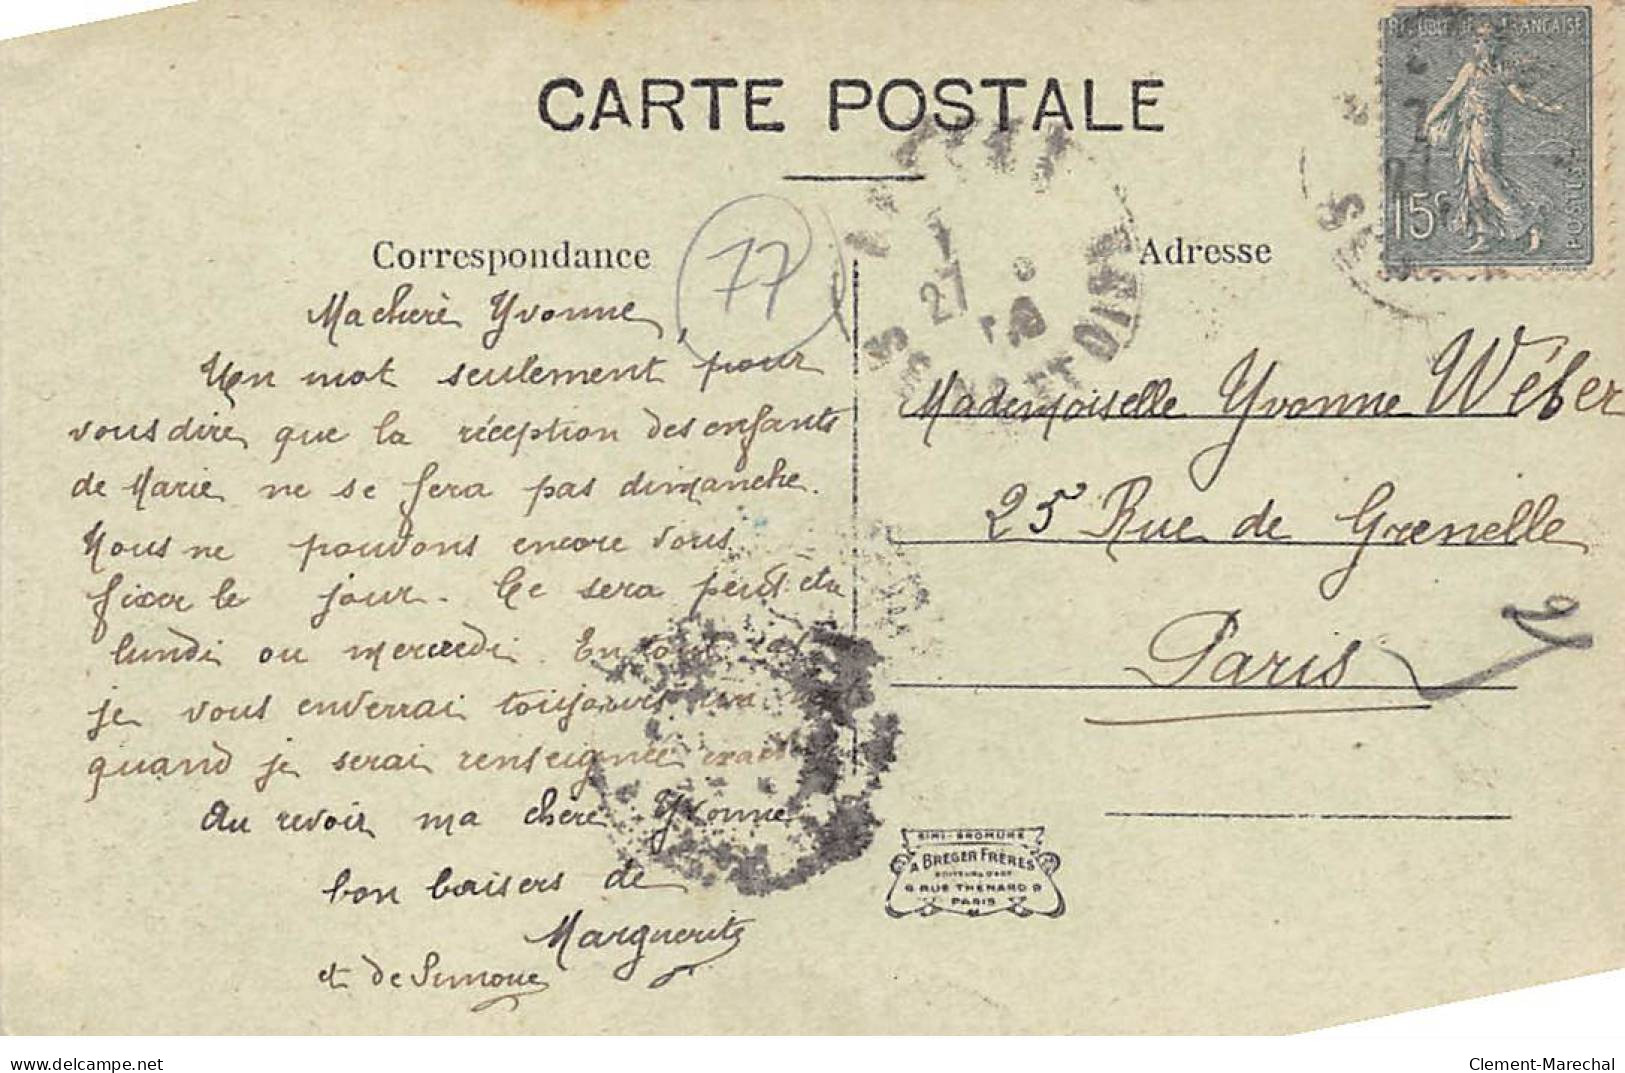 CARTE POSTALE
RÉPUBLIQUE FRANÇAISE
15c
POSTES
Correspondance
77
Adresse
Ma chere Yvonne,
Un mot seulement, pour
vous dire que la réception des enfants
de Marie ne se fera pas dimanche.
Nous ne pouvons encore vous
fixer le jour. Ce sera peut-etre
lundi ou mercredi. En tout
je vous enverrai toujours un
quand je serai renseignée
Au revoir ma chere Yvonne
bon baisers de
Marguerite
et de Simone
27
ET OISE
Mademoiselle Yvonne Wéber
25 Rue de Grenelle
Paris
SIMI-BROMURE
A BREGER FRÈRES
EDITEURS D'ART
9 RUE THENARD 9
PARIS
delcampe.net
Clement-Marechal